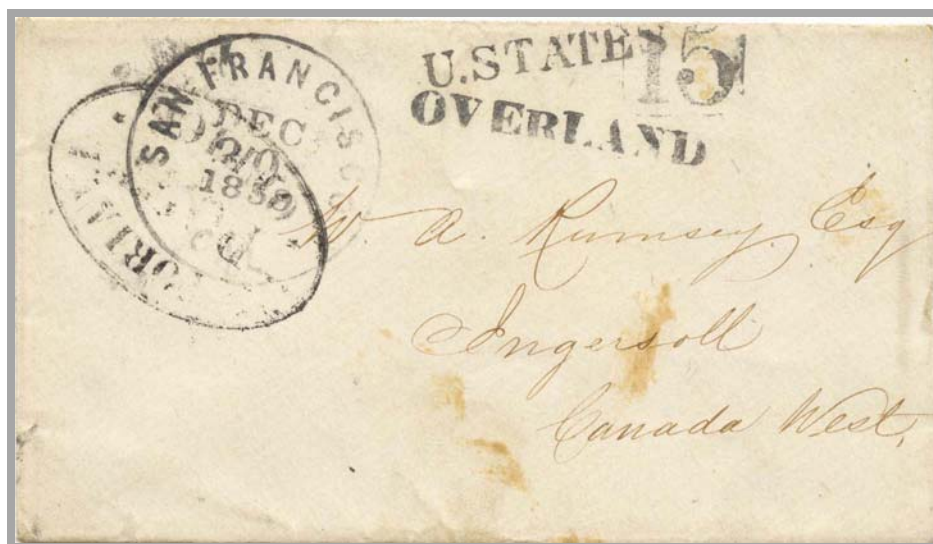 SAN FRANCISCO
DEC
20
1859
U.STATES
15
OVERLAND
W. A. Rumsey, Esq
Ingersoll
Canada West.